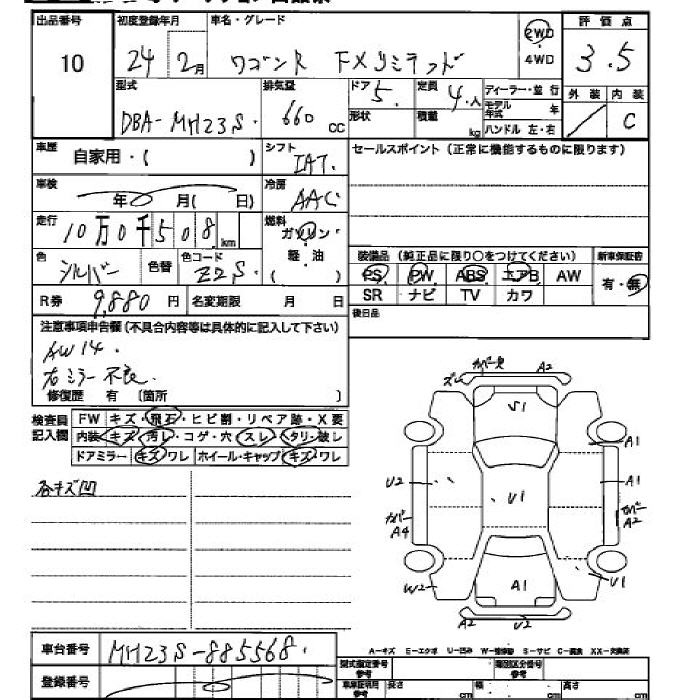 出品番号 初度登録年月 車名・グレード 評価点
10 24 2月 ワゴンR FXリミテッド 2WD・4WD 3.5
型式 排気量 ドア 定員 ディーラー・並行 外装 内装
DBA-MH23S 660cc 5 4人 モデル年式 年 C
形状 積載 kg ハンドル 左・右
車歴 自家用・( ) シフト IAT セールスポイント(正常に機能するものに限ります)
車検 年 月( 日) 冷房 AAC
走行 10万0千508km 燃料 ガソリン・軽・油 ( )
色 シルバー 色替 色コード Z2S 装備品(純正品に限り○をつけてください) 新車保証書
PS PW ABS エアB AW 有・無
R券 9,880円 名変期限 月 日 SR ナビ TV カワ
後日品
注意事項申告欄(不具合内容等は具体的に記入して下さい)
AW14.
右ミラー不良.
修復歴 有〔箇所 〕
検査員記入欄 FW キズ・飛石・ヒビ割・リペア跡・X要
内装 キズ・汚レ・コゲ・穴・スレ・タリ・破レ
ドアミラー キズ・ワレ ホイール・キャップ キズ・ワレ
各キズ凹
ズレ カバー欠 A2
S1
A1
U2 U1 A1
カバー A4 カバー A2
W2 A1 U1
A2 U2
車台番号 MH23S-885568.
A-キズ E-エクボ U-凹み W-補修跡 S-サビ C-腐食 XX-交換済
登録番号 型式指定番号 参考 類別区分番号 参考
車庫証明用 参考 長さ cm 幅 cm 高さ cm